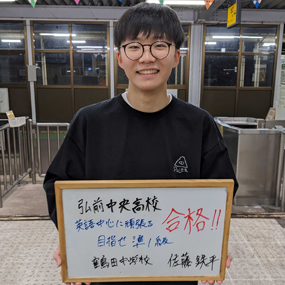 弘前中央高校
合格!!
英語中心に頑張る
目指せ 準1級
鶴田中学校 佐藤 鉄平